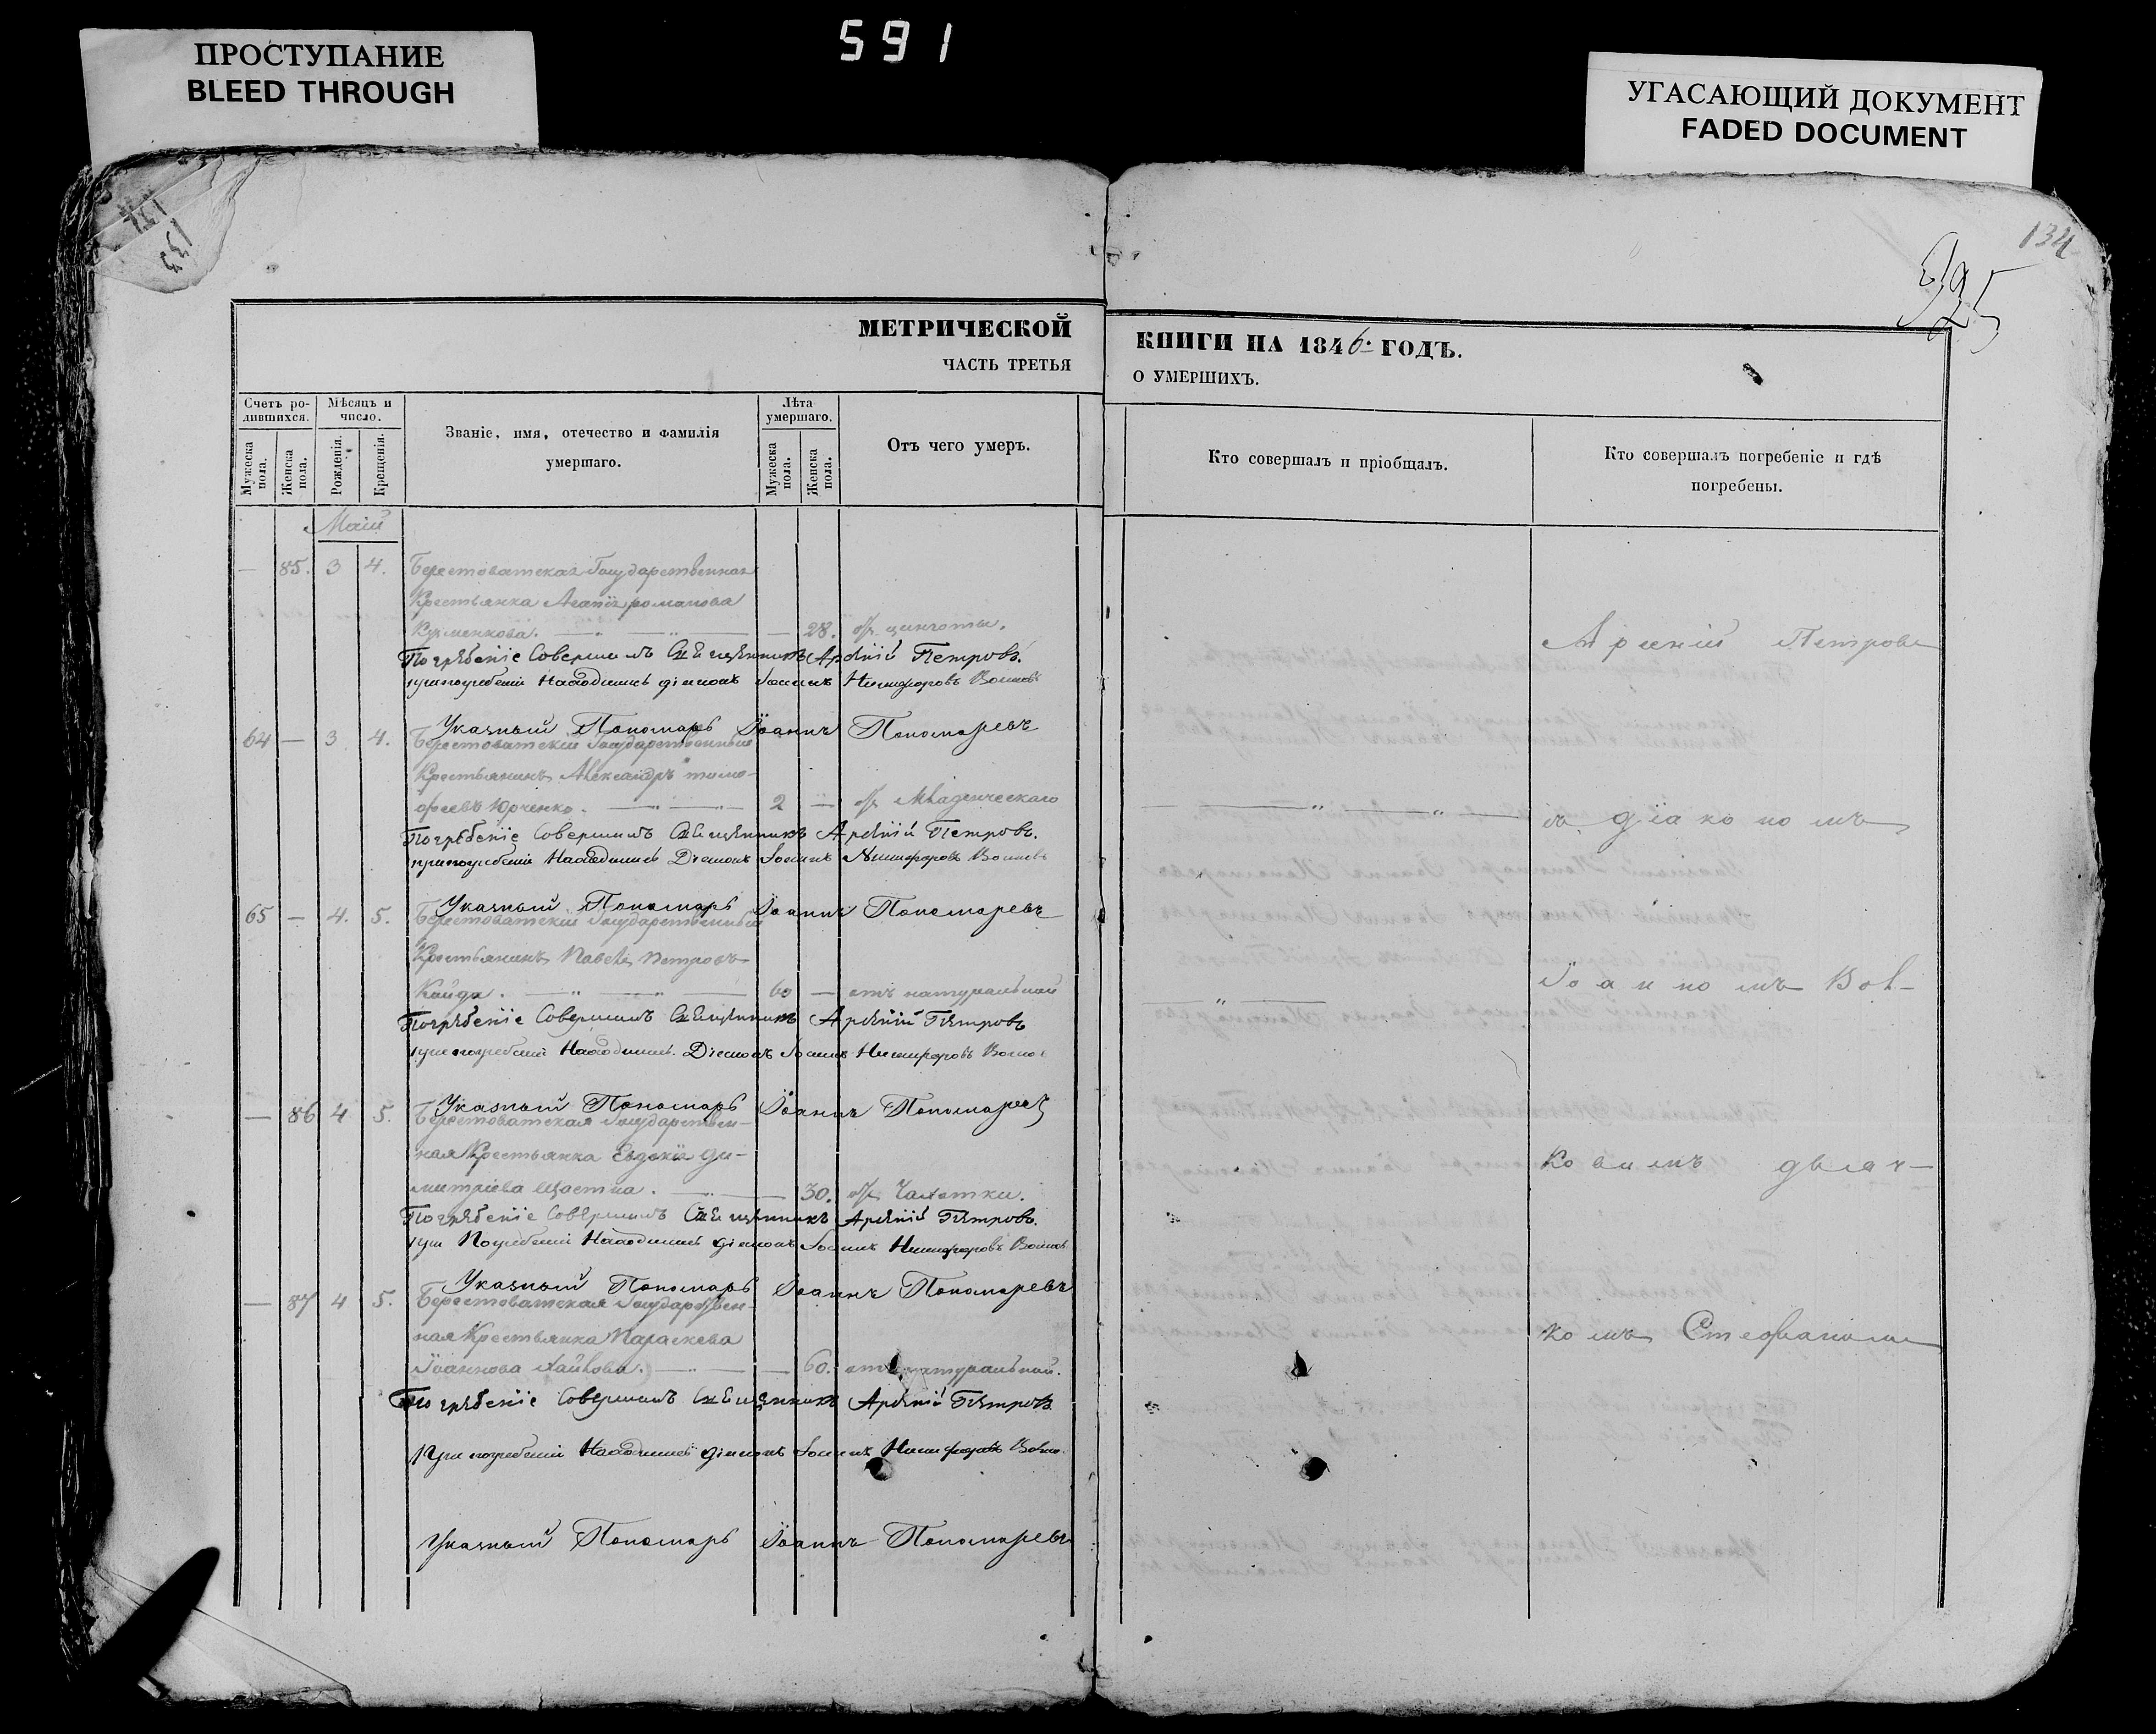 ПРОСТУПАНИЕ
BLEED THROUGH
591
УГАСАЮЩИЙ ДОКУМЕНТ
FADED DOCUMENT
134
133
134
МЕТРИЧЕСКОЙ
ЧАСТЬ ТРЕТЬЯ
КНИГИ НА 1846. ГОДЪ.
О УМЕРШИХЪ.
Счетъ ро-
дившихся.
Мужеска пола.
Женска пола.
Мѣсяцъ и
число.
Рожденія.
Крещенія.
Званіе, имя, отечество и фамилія
умершаго.
Лѣта
умершаго.
Мужеска пола.
Женска пола.
Отъ чего умеръ.
Кто совершалъ и пріобщалъ.
Кто совершалъ погребеніе и гдѣ
погребены.
Маій
— 85. 3 4. Берестоватская Государственная
Крестьянка Агапія романова
— 28. отъ цынготы.
Погрѣбеніе Совершилъ Священникъ Арсеній Петровъ.
при погребеніи Находились діяконъ Іоаннъ Никифоровъ
Указный Пономарь Іоаннъ Пономаревъ
64 — 3 4. Берестоватскій Государственный
Крестьянинъ Александръ тимо-
феевъ Юрченко. 2 — отъ Младенческаго
Погрѣбеніе Совершилъ Священникъ Арсеній Петровъ.
при погребеніи Находились Діяконъ Іоаннъ Никифоровъ
Указный Пономарь Іоаннъ Пономаревъ
65 — 4. 5. Берестоватскій Государственный
Крестьянинъ Павелъ Петровъ
Кайда. 60 — отъ натуральной
Погрѣбеніе Совершилъ Священникъ Арсеній Петровъ
при погребеніи Находились Діяконъ Іоаннъ Никифоровъ
Указный Пономарь Іоаннъ Пономаревъ
— 86 4 5. Берестоватская Государствен-
ная Крестьянка Евдокія Ди-
митріева Щастна. — 30. отъ Чахотки.
Погрѣбеніе Совершилъ Священникъ Арсеній Петровъ.
при Погребеніи Находились діяконъ Іоаннъ Никифоровъ
Указный Пономарь Іоаннъ Пономаревъ
— 87 4 5. Берестоватская Государствен-
ная Крестьянка Параскева
Іоаннова — 60. отъ натуральной.
Погрѣбеніе Совершилъ Священникъ Арсеній Петровъ
При погребеніи Находились діяконъ Іоаннъ Никифоровъ
Указный Пономарь Іоаннъ Пономаревъ
Арсеній Петровъ
съ діакономъ
Іоанномъ Вол-
ковимъ дьяч-
комъ Стефаномъ